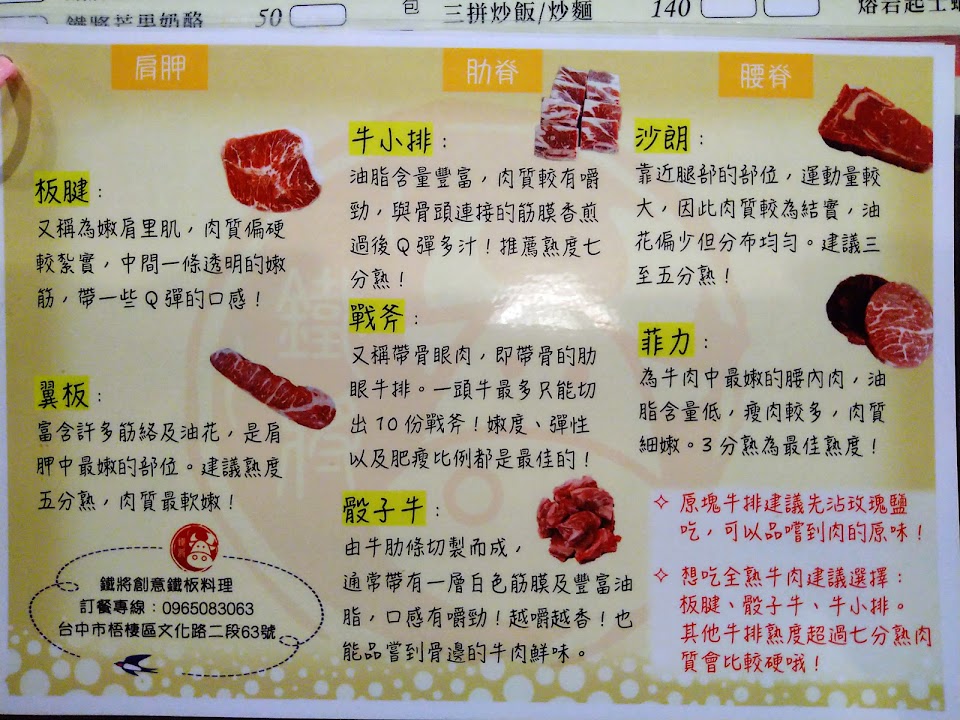 50
包
三拼炒飯/炒麵
140
肩胛
板腱：
又稱為嫩肩里肌，肉質偏硬
較紮實，中間一條透明的嫩
筋，帶一些Q彈的口感！
翼板：
富含許多筋絡及油花，是肩
胛中最嫩的部位。建議熟度
五分熟，肉質最軟嫩！
鐵將創意鐵板料理
訂餐專線：0965083063
台中市梧棲區文化路二段63號
肋脊
牛小排：
油脂含量豐富，肉質較有嚼
勁，與骨頭連接的筋膜香煎
過後Q彈多汁！推薦熟度七
分熟！
戰斧：
又稱帶骨眼肉，即帶骨的肋
眼牛排。一頭牛最多只能切
出10份戰斧！嫩度、彈性
以及肥瘦比例都是最佳的！
骰子牛：
由牛肋條切製而成，
通常帶有一層白色筋膜及豐富油
脂，口感有嚼勁！越嚼越香！也
能品嘗到骨邊的牛肉鮮味。
腰脊
沙朗：
靠近腿部的部位，運動量較
大，因此肉質較為結實，油
花偏少但分布均勻。建議三
至五分熟！
菲力：
為牛肉中最嫩的腰內肉，油
脂含量低，瘦肉較多，肉質
細嫩。3分熟為最佳熟度！
✧ 原塊牛排建議先沾玫瑰鹽
吃，可以品嚐到肉的原味！
✧ 想吃全熟牛肉建議選擇：
板腱、骰子牛、牛小排。
其他牛排熟度超過七分熟肉
質會比較硬哦！